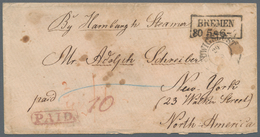 By Hamburg Steamer
BREMEN
Mr. Adolph Schreiber
paid
New York
10
(23 Water Street)
PAID
North America